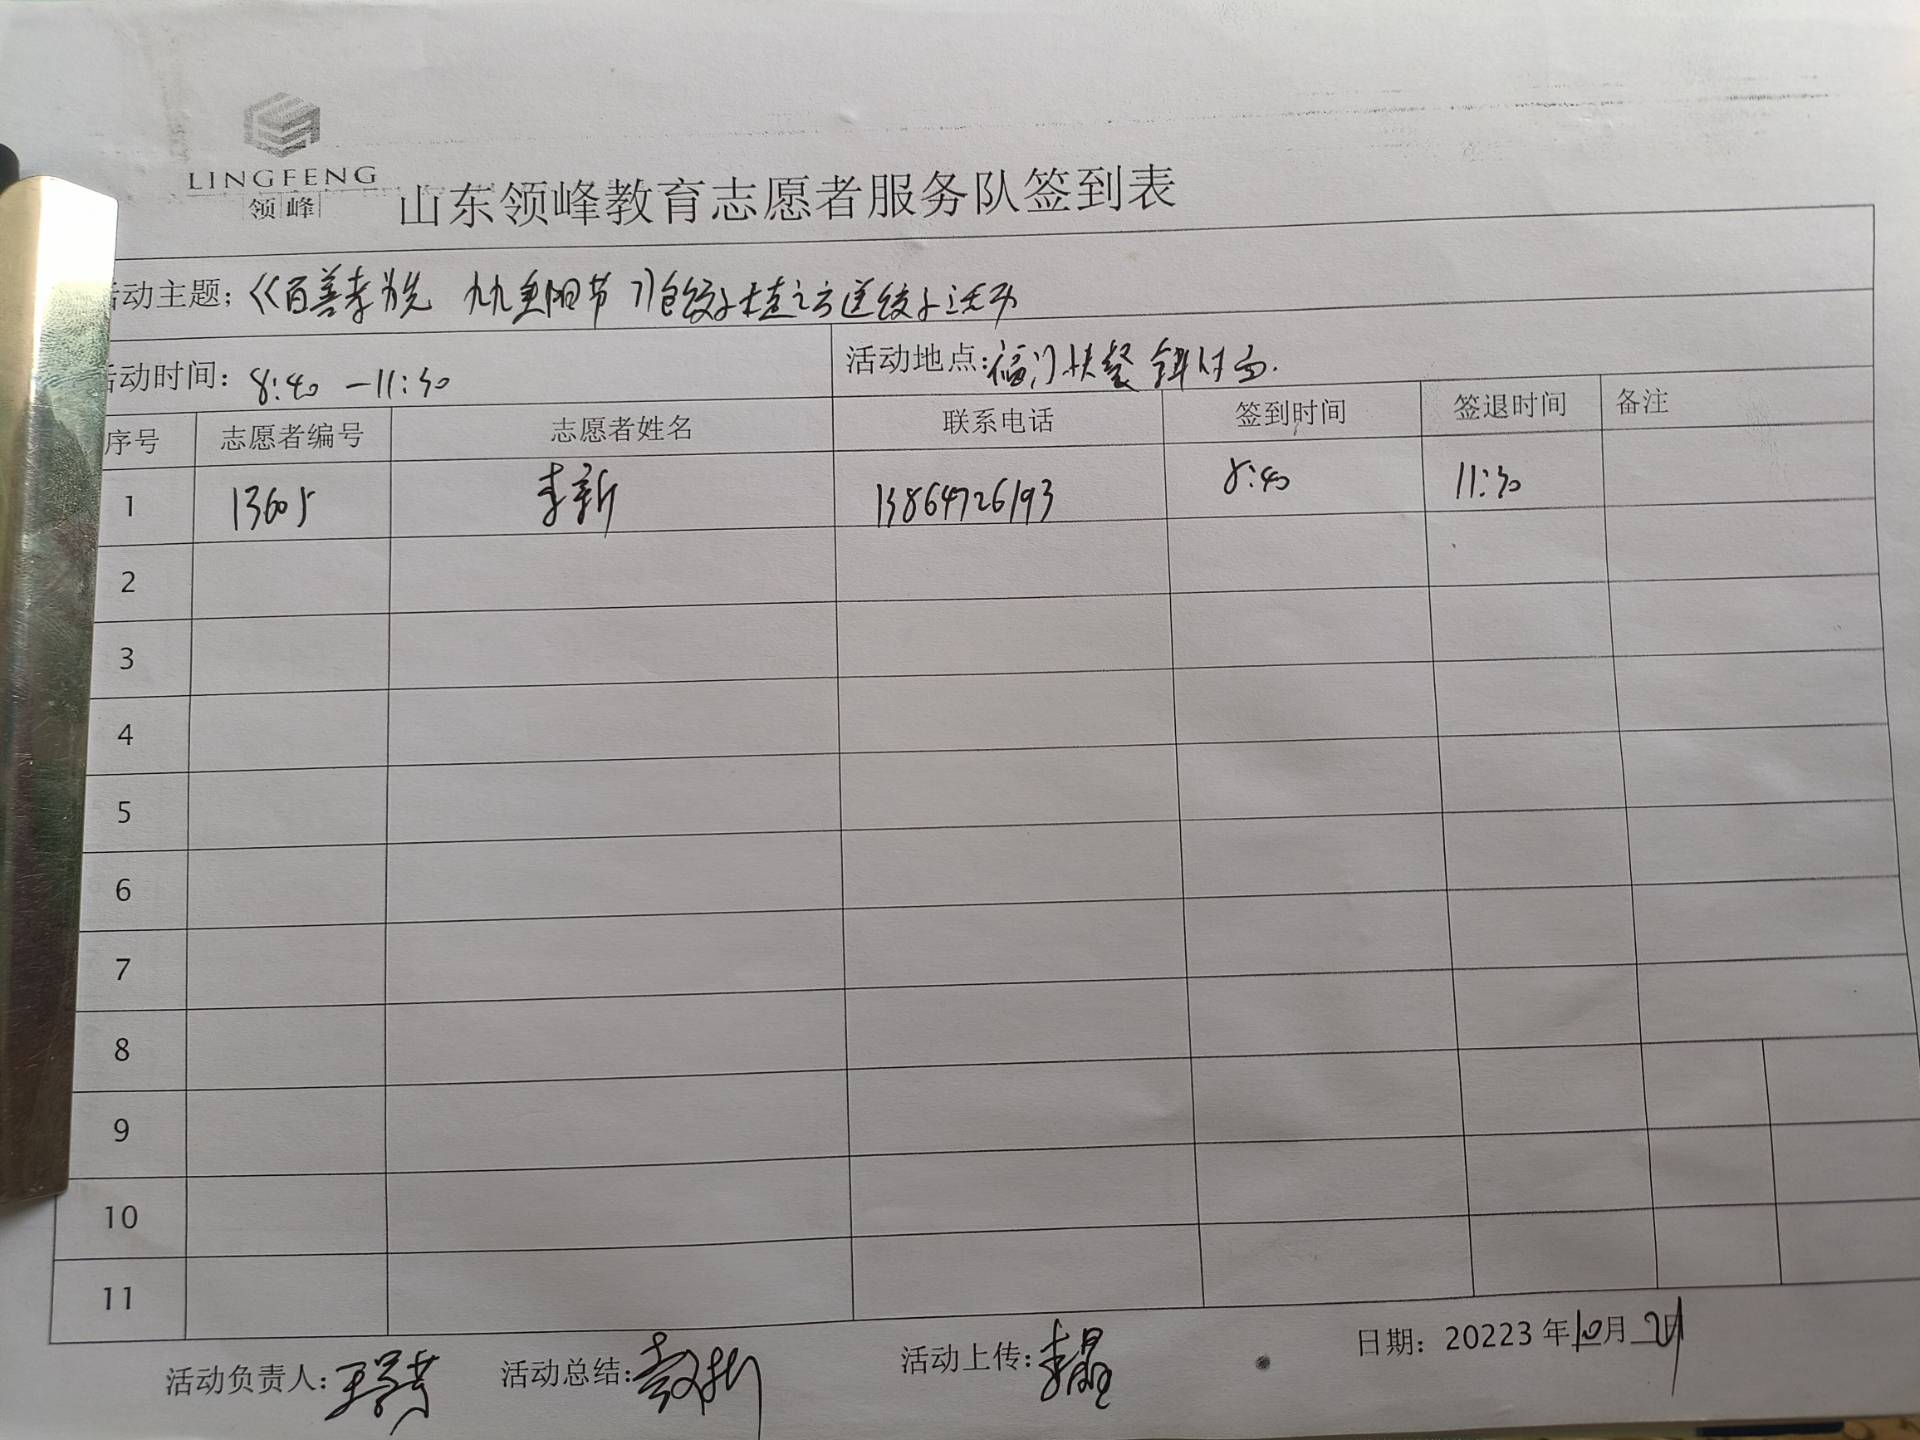 LINGFENG
领峰
山东领峰教育志愿者服务队签到表
活动主题：《百善孝为先 九九重阳节》包饺子 送饺子活动
活动时间：8:40 —11:30
活动地点：福门快餐
序号 志愿者编号 志愿者姓名 联系电话 签到时间 签退时间 备注
1 13605 李新 13864726193 8:40 11:30
2
3
4
5
6
7
8
9
10
11
活动负责人： 活动总结： 活动上传：李晶 日期：20223 年10月21日